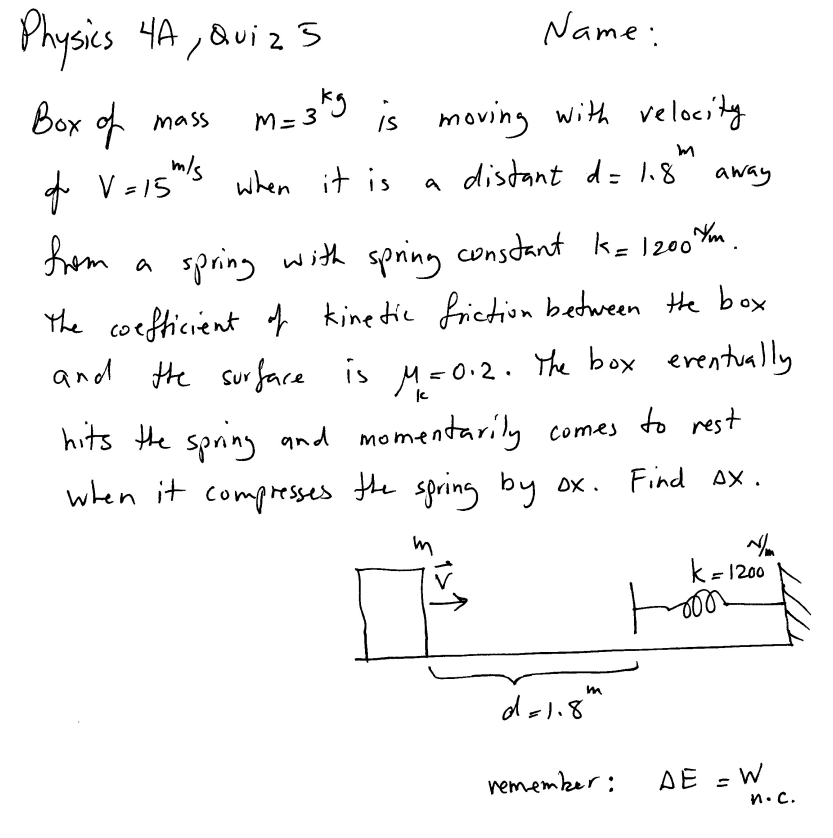 Physics 4A, Quiz 5 Name:
Box of mass m = 3 kg is moving with velocity
of V = 15 m/s when it is a distant d = 1.8 m away
from a spring with spring constant k = 1200 N/m.
The coefficient of kinetic friction between the box
and the surface is μk = 0.2. The box eventually
hits the spring and momentarily comes to rest
when it compresses the spring by Δx. Find Δx.
m
V⃗
k = 1200 N/m
d = 1.8 m
remember: ΔE = W n.c.